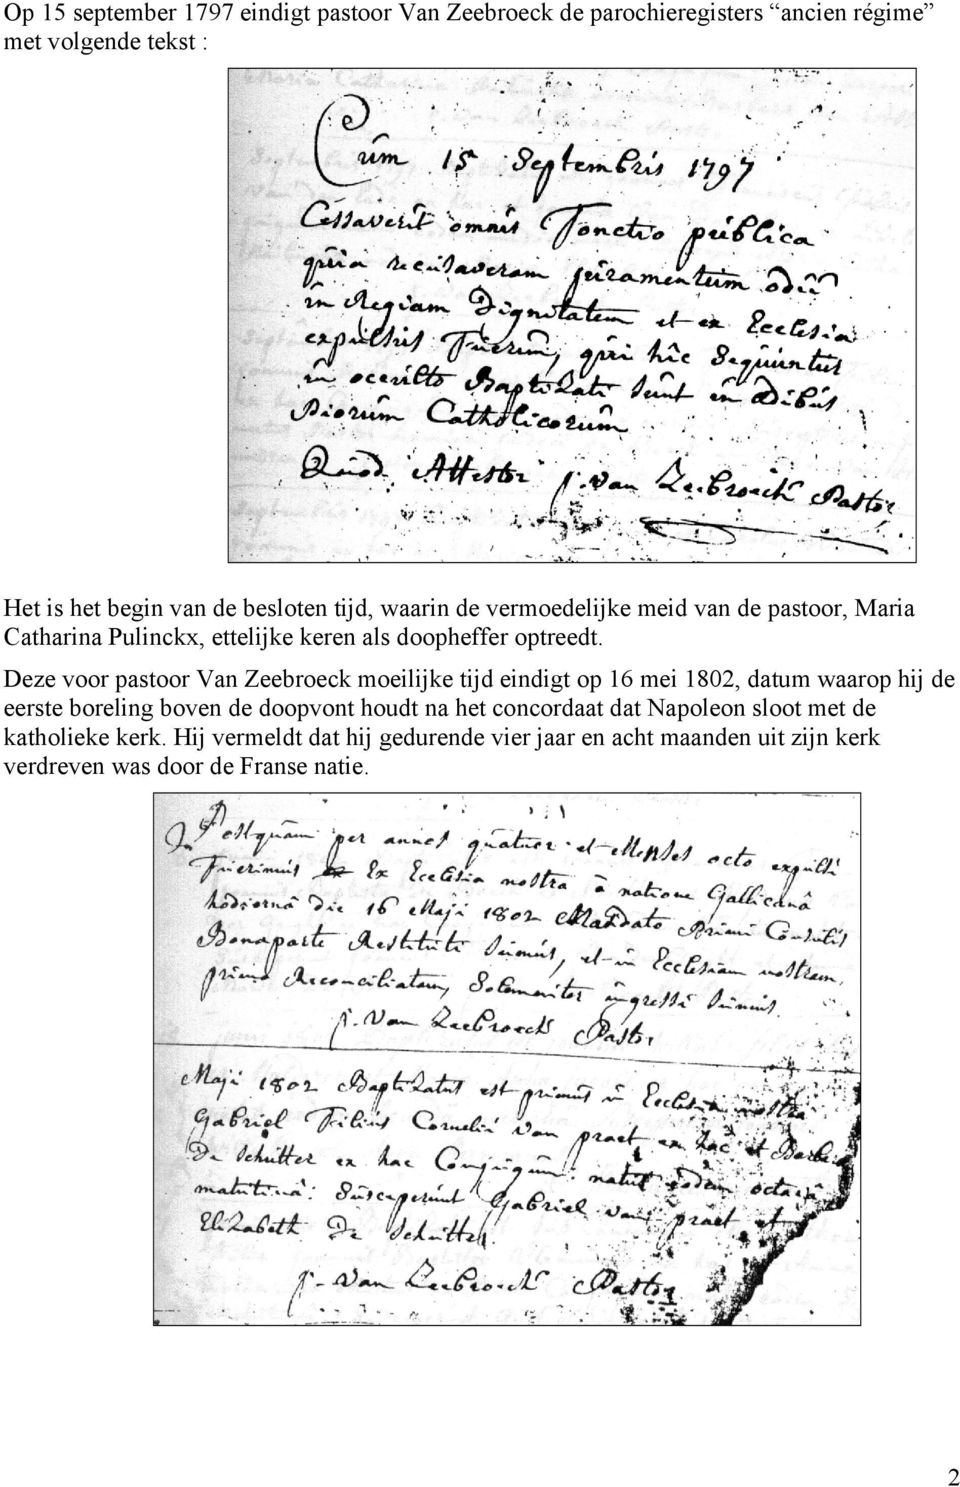 Op 15 september 1797 eindigt pastoor Van Zeebroeck de parochieregisters “ancien régime”
met volgende tekst :
Cum 15 Septembris 1797
Cessaverit omnis Fonctio publica
quia recusaveram juramentum odii
in Regiam Dignitatem et ex Ecclesia
expulsus Fuerim, qui hic Sequuntur
in occulto Baptizati sunt in ædibus
Piorum Catholicorum
Quod Attestor j. van Zeebroeck Pastor
Het is het begin van de besloten tijd, waarin de vermoedelijke meid van de pastoor, Maria
Catharina Pulinckx, ettelijke keren als doopheffer optreedt.
Deze voor pastoor Van Zeebroeck moeilijke tijd eindigt op 16 mei 1802, datum waarop hij de
eerste boreling boven de doopvont houdt na het concordaat dat Napoleon sloot met de
katholieke kerk. Hij vermeldt dat hij gedurende vier jaar en acht maanden uit zijn kerk
verdreven was door de Franse natie.
Postquam per annos quatuor et Menses octo expulsi
Fuerimus Ex Ecclesia nostra a natione Gallicanâ
hodiernâ Die 16 Maji 1802 Mandato Primi Consulis
Bonaparte Restituti Simus, et in Ecclesiam nostram
prius Reconciliatam, Solemniter ingressi Simus.
j. Van Zeebroeck Pastor
Maji 1802 Baptizatus est primus in Ecclesia nostra
Gabriel Filius Cornelii van praet ex hac et Barbe
De Schutter ex hac Conjugum: natus eodem octavâ
matutinâ: Susceperunt Gabriel van praet et
Elizabeth De Schutter
j. Van Zeebroeck Pastor
2